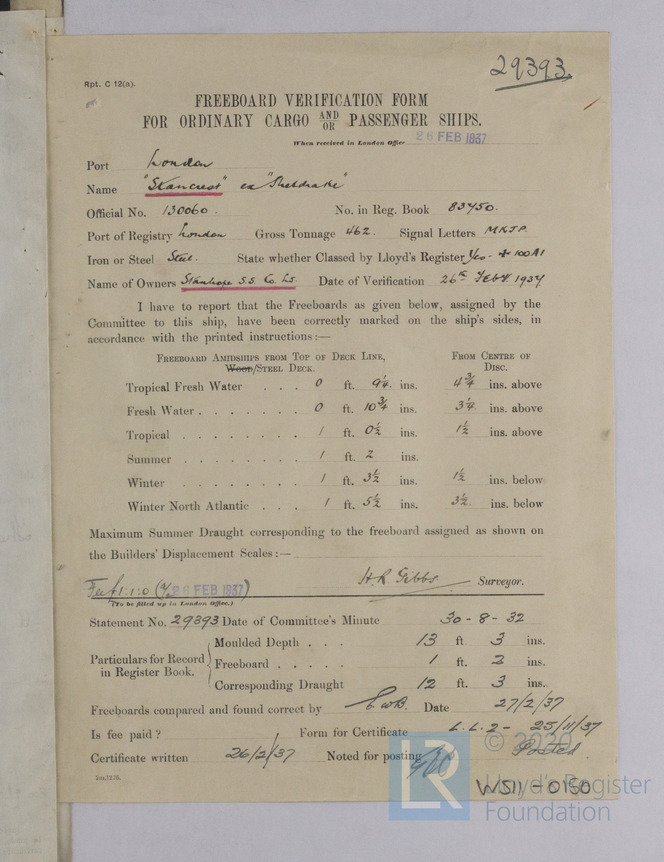 29393
Rpt. C 12(a).
FREEBOARD VERIFICATION FORM
FOR ORDINARY CARGO AND/OR PASSENGER SHIPS.
When received in London Office 26 FEB 1937
Port London
Name "Stancrest" ex "Sheldrake"
Official No. 130060. No. in Reg. Book 83750.
Port of Registry London Gross Tonnage 462. Signal Letters MKJP.
Iron or Steel Steel. State whether Classed by Lloyd's Register Yes - ✠ 100A1
Name of Owners Stanhope S.S. Co. Ld. Date of Verification 26th Feby 1937
I have to report that the Freeboards as given below, assigned by the
Committee to this ship, have been correctly marked on the ship's sides, in
accordance with the printed instructions:—
FREEBOARD AMIDSHIPS FROM TOP OF DECK LINE, FROM CENTRE OF
Wood/STEEL DECK. DISC.
Tropical Fresh Water . . . 0 ft. 9¼ ins. 4¾ ins. above
Fresh Water . . . . . . . 0 ft. 10¾ ins. 3¼ ins. above
Tropical . . . . . . . . 1 ft. 0½ ins. 1½ ins. above
Summer . . . . . . . . 1 ft. 2 ins.
Winter . . . . . . . . 1 ft. 3½ ins. 1½ ins. below
Winter North Atlantic . . . 1 ft. 5½ ins. 3½ ins. below
Maximum Summer Draught corresponding to the freeboard assigned as shown on
the Builders' Displacement Scales:—
H R Gibbs Surveyor.
Fee £1:1:0 26 FEB 1937
(To be filled up in London Office.)
Statement No. 29393 Date of Committee's Minute 30-8-32
Particulars for Record in Register Book.
Moulded Depth . . . 13 ft 3 ins.
Freeboard . . . . . 1 ft. 2 ins.
Corresponding Draught 12 ft. 3 ins.
Freeboards compared and found correct by E.W.B. Date 27/2/37
Is fee paid? Form for Certificate L.L.2 - 25/11/37
Certificate written 26/2/37 Noted for posting Posted
2m,12.35.
W511-0150
© 2020
LR
Lloyd's Register
Foundation